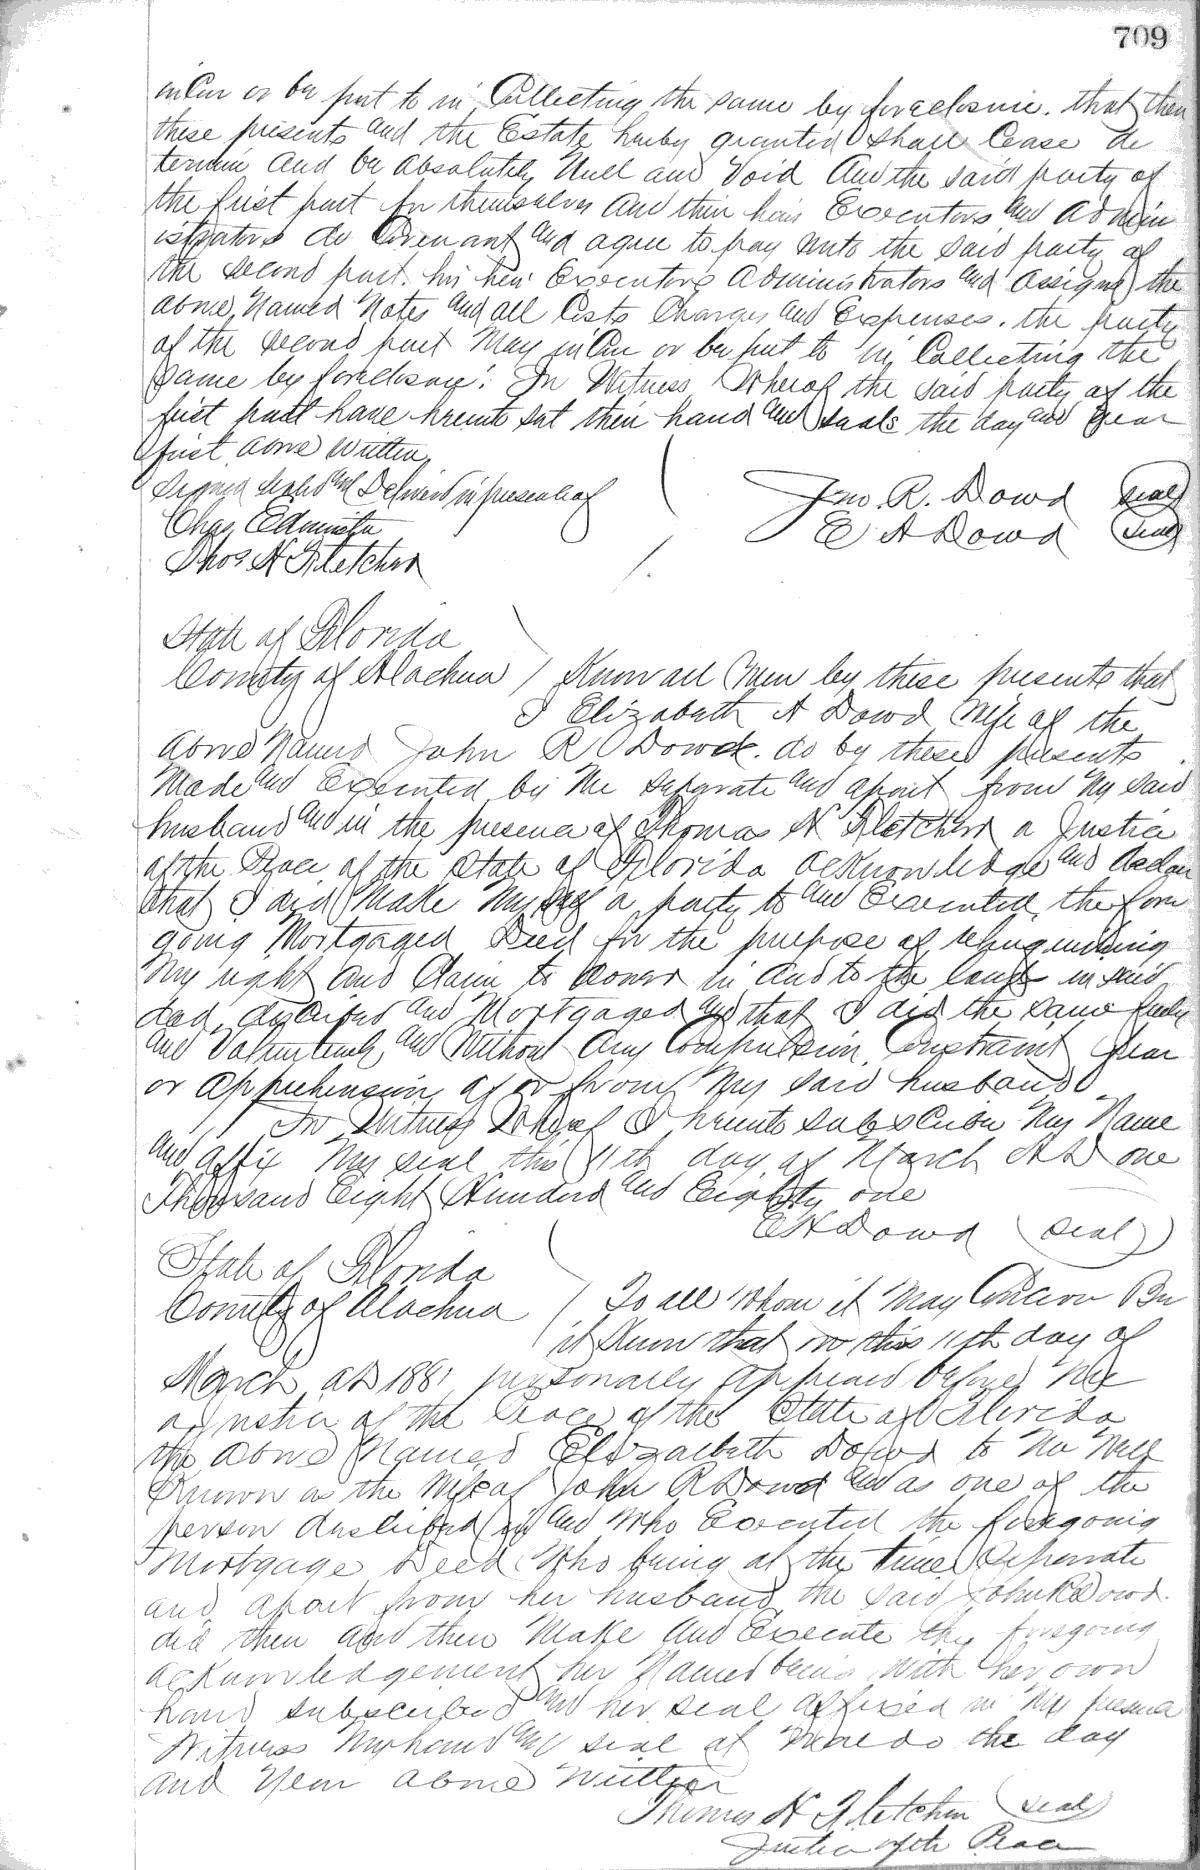 709
incur or be put to in Collecting the same by foreclosure. that then
these presents and the Estate hereby granted shall Cease de
termin and be absolutely Null and Void And the said party of
the first part for themselves and their heirs Executors and Admin
istrators do Covenant and agree to pay unto the said party of
the second part. his heirs Executors Administrators and Assigns the
above Named Notes and all Costs Charges and Expenses. the party
of the second part May inCur or be put to in Collecting the
Same by foreclosure. In Witness Whereof the said party of the
first part have hereunto set their hand and seals the day and year
first above written
Signed sealed and Delivered in presence of
Jno. R. Dowd seal
Chas Edmister
E A Dowd seal
Thos H Fletcher
State of Florida
County of Alachua / Know all Men by these presents that
I Elizabeth A Dowd Wife of the
above Named John R Dowd. do by these presents
Made and Executed by Me separate and apart from My said
husband and in the presence of Thomas H Fletcher a Justice
of the Peace of the State of Florida acknowledge and declare
that I did Make Myself a party to and Executed the fore
going Mortgaged Deed for the purpose of relinquishing
My right and Claim to dower in and to the lands in said
deed described and Mortgaged and that I did the same freely
and Voluntarily and Without Any Compulsion Constraint fear
or apprehension of or from My said husband
In Witness Whereof I hereunto subscribe My Name
and affix My seal this 11th day of March AD one
Thousand Eight Hundred and Eighty one
E A Dowd (seal)
State of Florida
County of Alachua / To all Whom it May Concern Be
it Known that on this 11th day of
March AD 1881 personally appeared before Me
a Justice of the Peace of the State of Florida
the above Named Elizabeth Dowd to Me Well
Known as the Wife of John R Dowd and as one of the
person described in and Who Executed the foregoing
Mortgage Deed Who being at the time Seperate
and apart from her husband the said John R Dowd.
did then and then Make and Execute the foregoing
acknowledgement her Named being with her own
hand subscribed and her seal affixed in My presence
Witness My hand and seal at the day
and Year above Written
Thomas H Fletcher (seal)
Justice of the Peace